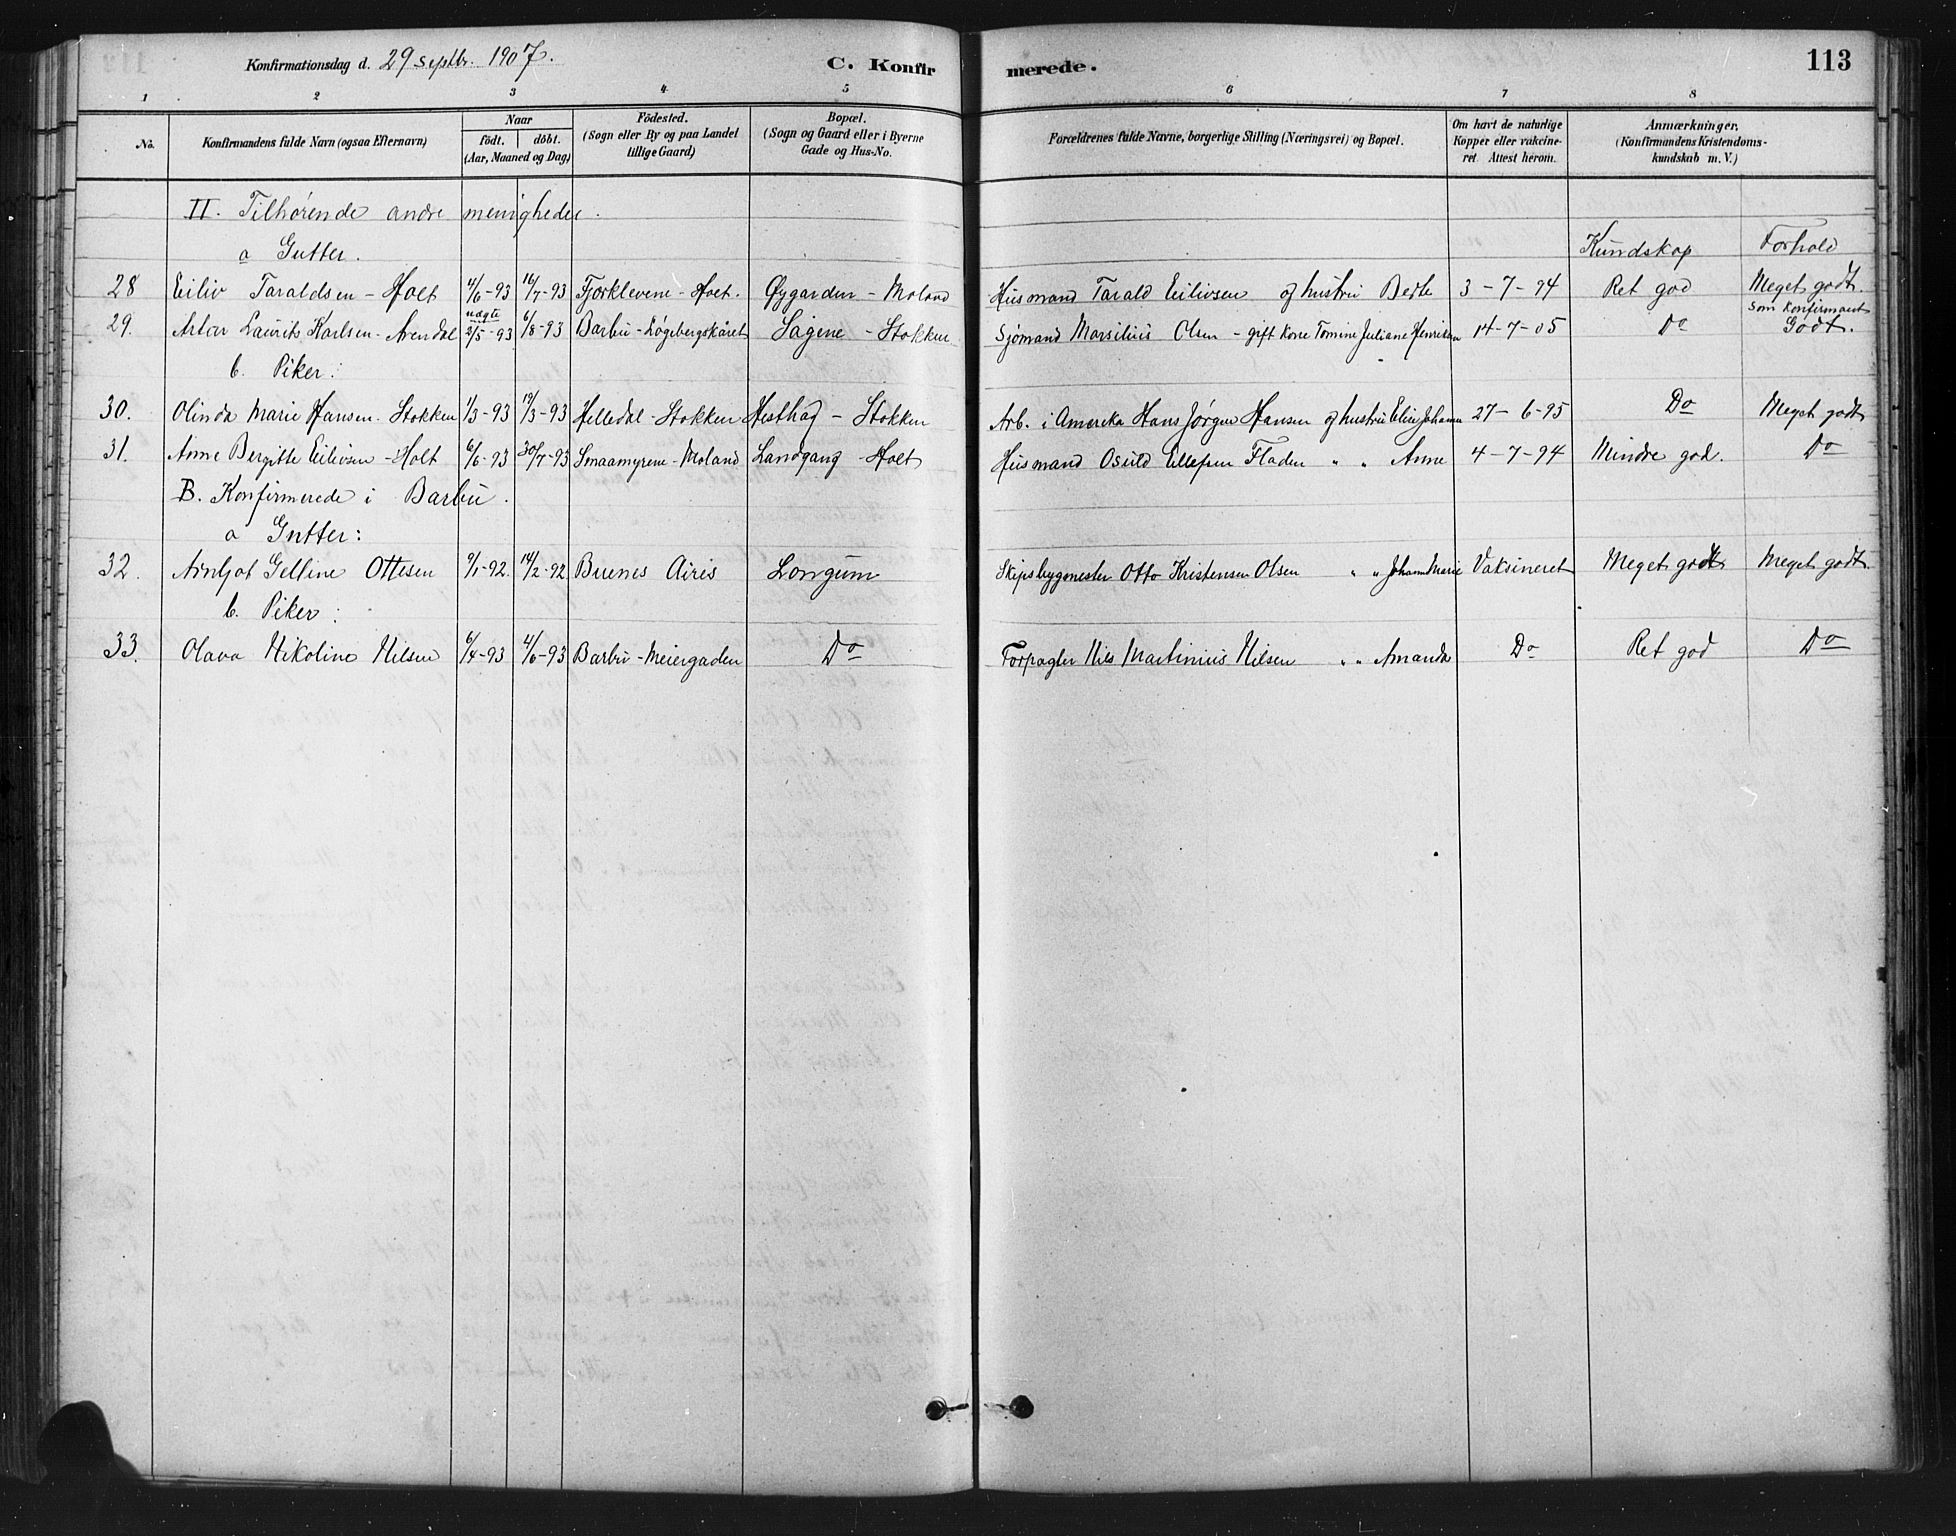 Konfirmationsdag d. 29 septbr. 1907. C. Konfirmerede. 113
1 2 3 4 5 6 7 8
No. Konfirmandens fulde Navn (ogsaa Efternavn) Naar födt. döbt. (Aar, Maaned og Dag) Födested. (Sogn eller By og paa Landet tillige Gaard) Bopæl. (Sogn og Gaard eller i Byerne Gade og Hus-No. Forældrenes fulde Navne, borgerlige Stilling (Næringsvei) og Bopæl. Om havt de naturlige Kopper eller vakcineret Attest herom. Anmærkninger. (Konfirmandens Kristendomskundskab m. V.)
II. Tilhørende andre menigheder.
a Gutter. Kundskap Forhold
28 Eiliv Taraldsen - Holt 4/6-93 16/7-93 Fjorklevene - Holt. Øygarden - Moland Husmand Tarald Eilivsen og hustru Berte 3-7-94 Ret god Meget godt.
29. Artor Laurits Karlsen - Arendal uægte 2/5-93 6/8-93 Barbu - Løgebergskåret Sagene - Stokken Sjømand Marsilius Olsen - gift Kone Tomine Juliane Henriksen 14-7-05 Do som konfirmant Godt.
b. Piker:
30. Olinda Marie Hansen. Stokken 1/3-93 19/3-93 Helledal - Stokken Hesthag - Stokken Arb. i Amerika Hans Jørgen Hansen og hustru Elin Johanne 27-6-95 Do Meget godt
31. Anne Bergitte Eilivsen - Holt 6/6-93 30/7-93 Smaamyrene - Moland Landgang - Holt Husmand Osuld Ellefsen Fladen " " Anne 4-7-94 Mindre god. Do
B. Konfirmerede i Barbu.
a Gutter:
32. Arnljot Gelline Ottesen 9/1-92. 14/2-92 Buenos Airis Longum Skipsbygmester Otto Kristensen Olsen " " Johanne Marie Vaksineret Meget godt Meget godt.
b. Piker:
33. Olava Nikoline Nilsen 6/4-93 4/6-93 Barbu - Meiergaden Do Forpagter Nils Martinius Nilsen " " Amanda Do Ret god Do